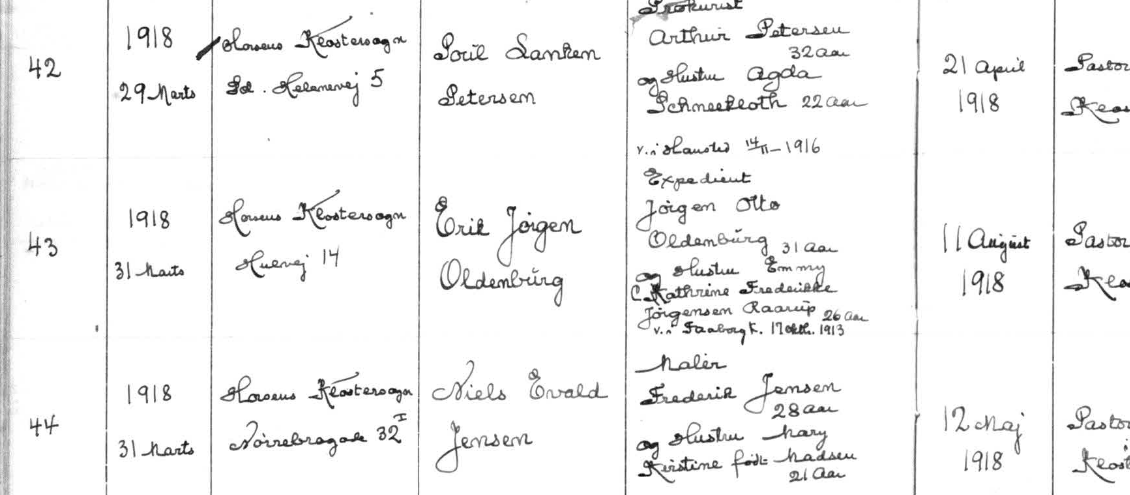 42
1918
29 Marts
Horsens Klostersogn
Gl. Helenevej 5
Poril Lanken
Petersen
Prokurist
Arthur Petersen
32 aar
og Hustru Agda
Schneekloth 22 aar
v. i Hansted 14/11 - 1916
21 April
1918
Pastor
43
1918
31 Marts
Horsens Klostersogn
Huevej 14
Erik Jörgen
Oldenbŭrg
Expedient
Jörgen Otto
Oldenbŭrg 31 aar
og Hustru Emmy
C. Kathrine Frederikke
Jörgensen Raarŭp 26 aar
v. i Faaborg K. 17 okt. 1913
11 Aŭgŭst
1918
Pastor
44
1918
31 Marts
Horsens Klostersogn
Nörrebrogade 32 I
Niels Evald
Jensen
Maler
Frederik Jensen
28 aar
og Hustru Mary
Kirstine født Madsen
21 Aar
12 Maj
1918
Pastor